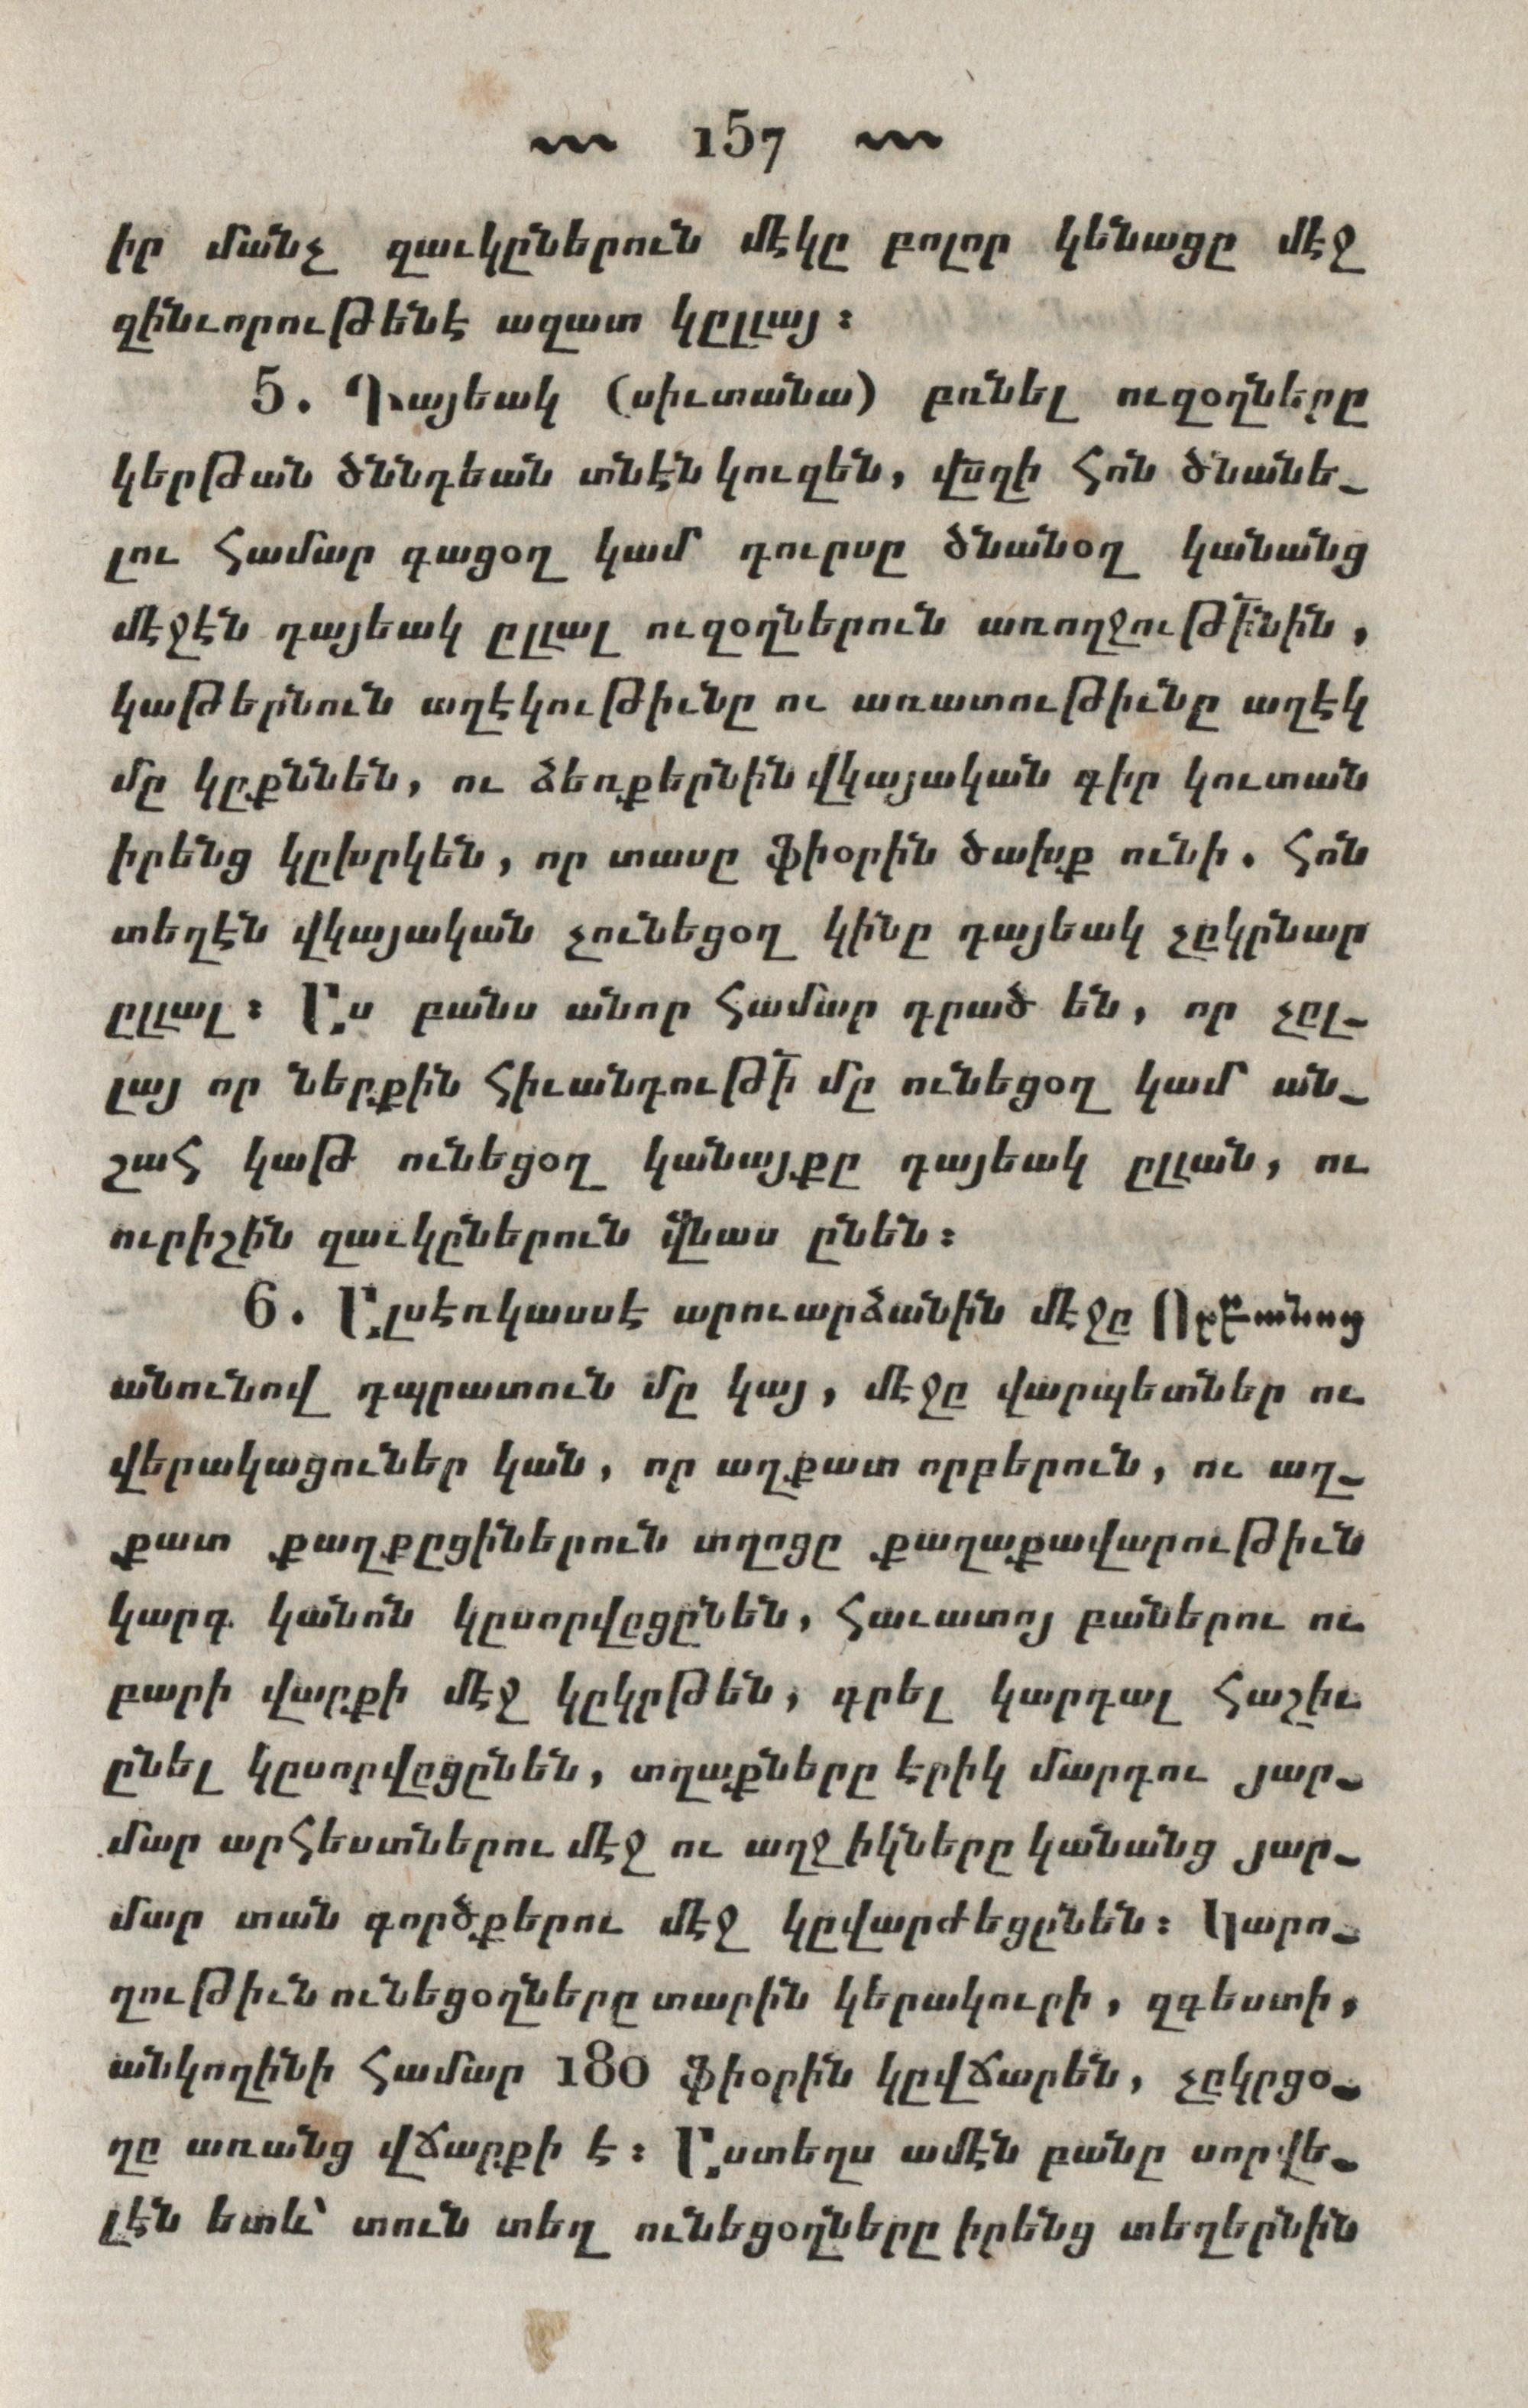 157
իր մանչ զաւկըներուն մէկը բոլոր կենացը մէջ
զինւորութենէ ազատ կըլլայ։
5. Դայեակ (սիւտանա) բռնել ուզօղները
կերթան ծննդեան տնէն կուզեն, վս̃զի հոն ծնանե֊
լու համար գացօղ կամ դուրսը ծնանօղ կանանց
մէջէն դայեակ ըլլալ ուզօղներուն առողջութի̃նին,
կաթերնուն աղէկութիւնը ու առատութիւնը աղէկ
մը կըքննեն, ու ձեռքերնին վկայական գիր կուտան
իրենց կըխրկեն, որ տասը ֆիօրին ծախք ունի. հոն
տեղէն վկայական չունեցօղ կինը դայեակ չըկրնար
ըլլալ։ Ըս բանս անոր համար դրած են, որ չըլ֊
լայ որ ներքին հիւանդութի̃ մը ունեցօղ կամ ան֊
շահ կաթ ունեցօղ կանայքը դայեակ ըլլան, ու
ուրիշին զաւկըներուն վնաս ընեն։
6. Ըլսէռկասսէ արուարձանին մէջը Որբանոց
անունով դպրատուն մը կայ, մէջը վարպետներ ու
վերակացուներ կան, որ աղքատ որբերուն, ու աղ֊
քատ քաղքըցիներուն տղոցը քաղաքավարութիւն
կարգ կանոն կըսորվըցընեն, հաւատոյ բաներու ու
բարի վարքի մէջ կըկրթեն, գրել կարդալ հաշիւ
ընել կըսորվըցընեն, տղաքները էրիկ մարդու յար֊
մար արհեստներու մէջ ու աղջիկները կանանց յար֊
մար տան գործքերու մէջ կըվարժեցընեն։ Կարո֊
ղութիւն ունեցօղները տարին կերակուրի, զգեստի,
անկողինի համար 180 ֆիօրին կըվճարեն, չըկրցօ֊
ղը առանց վճարքի է։ Ըստեղս ամէն բանը սորվե֊
լէն ետև՝ տուն տեղ ունեցօղները իրենց տեղերնին